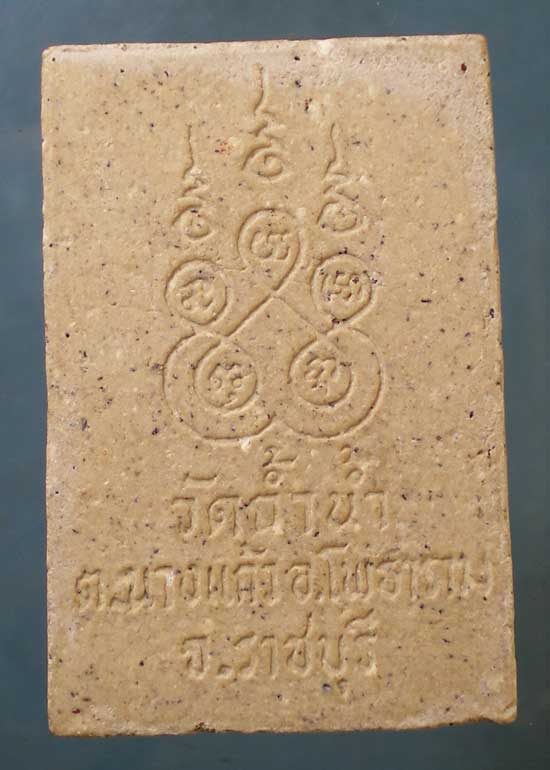 วัดถ้ำน้ำ
ต.นางแก้ว อ.โพธาราม
จ.ราชบุรี